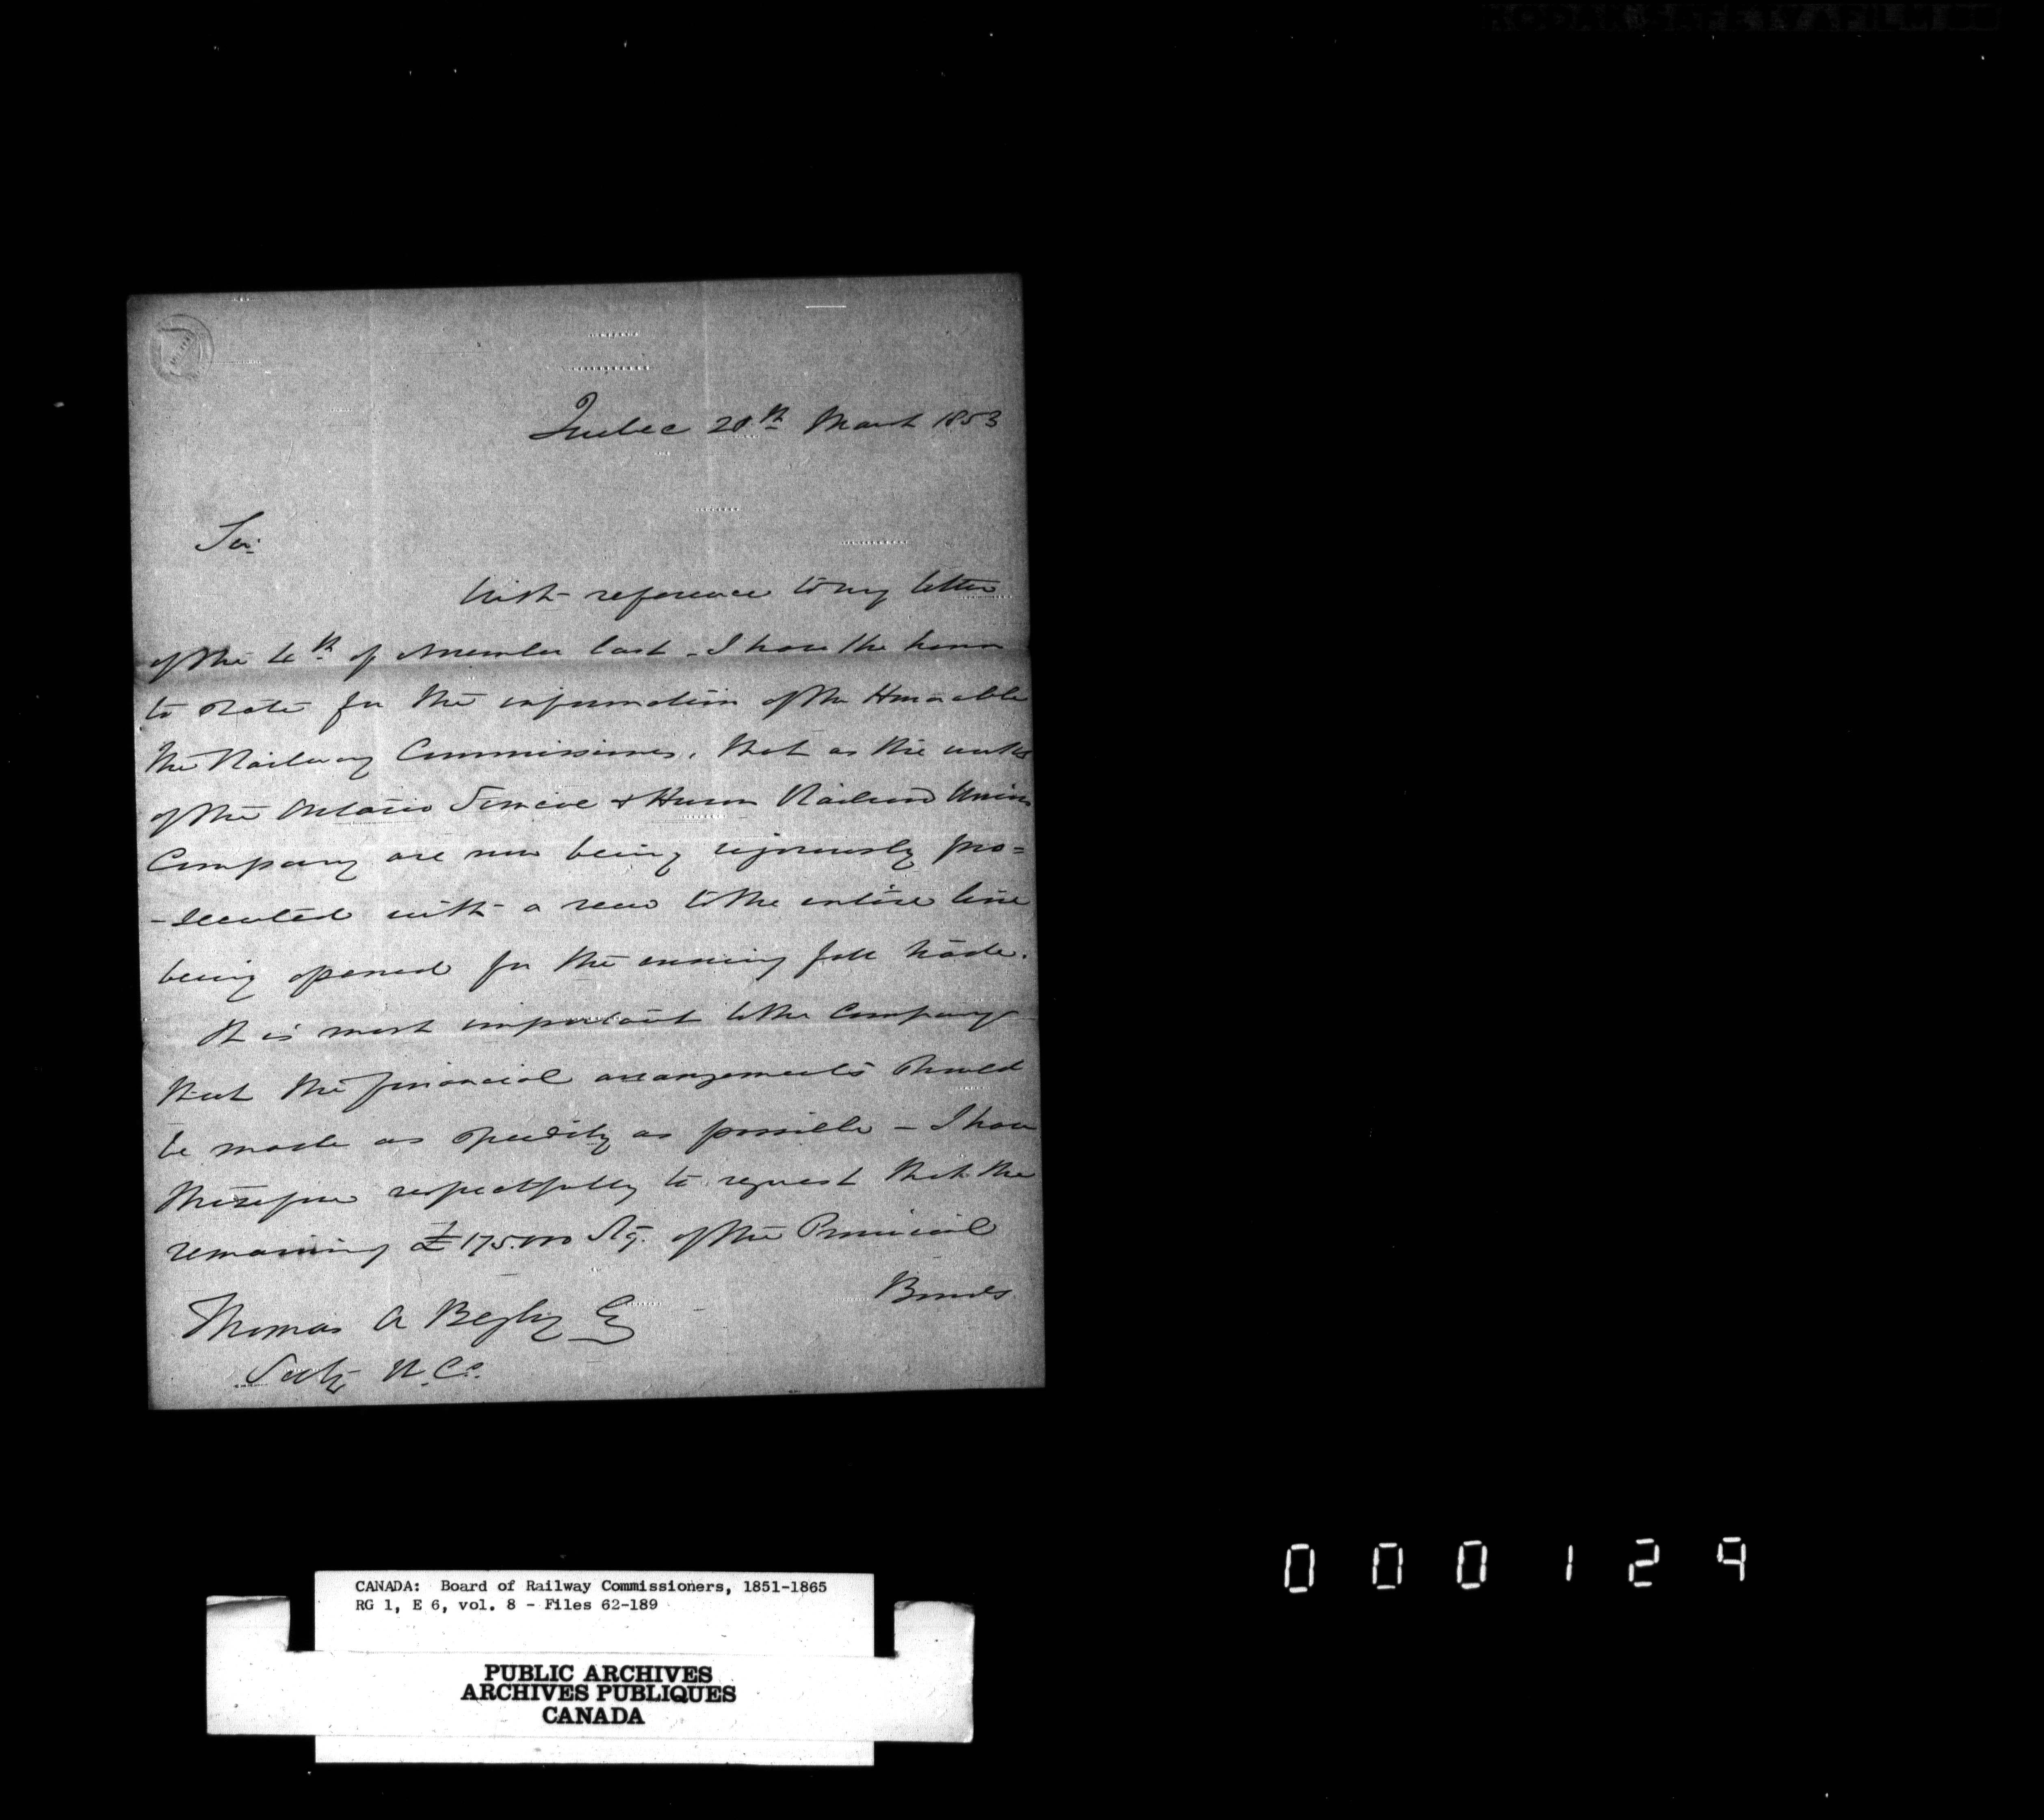 KODAK SAFETY FILM
Quebec 28th March 1853
Sir.
With reference to my letter
of the 4th of November last - I have the honor
to state for the information of the Honorable
the Railway Commissioners, that as the works
of the Ontario Simcoe & Huron Railroad Union
Company are now being vigorously pro=
-secuted with a view to the entire line
being opened for the ensuing fall trade.
It is most important to the Company
that the financial arrangements should
be made as speedily as possible - I have
therefore respectfully to request that the
remaining £175.000 Stg. of the Provincial
Bonds
Thomas A Begly Esq
Secty R. Cs.
000129
CANADA: Board of Railway Commissioners, 1851-1865
RG 1, E 6, vol. 8 - Files 62-189
PUBLIC ARCHIVES
ARCHIVES PUBLIQUES
CANADA